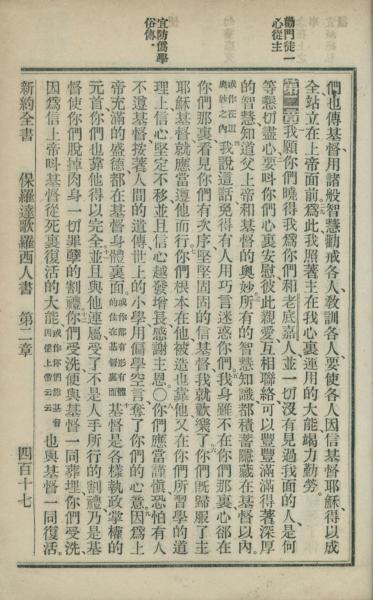 勸門徒一
心從主
宜防儒學
俗傳
們也傳基督用諸般智慧勸戒各人教訓各人要使各人因信基督耶穌得以成
全站立在上帝面前爲此我照著主在我心裏運用的大能竭力勤勞
第二章我願你們曉得我爲你們和老底嘉人並一切沒有見過我面的人是何
等懇切盡心要呌你們心裏安慰彼此親愛互相聯絡可以豐豐滿滿得著深厚
的智慧知道父上帝和基督的奧妙所有的智慧知識都積蓄隱藏在基督以內
或作在這奧妙之內我說這話免得有人用巧言迷惑你們我身雖不在你們那裏心卻在
你們那裏看見你們有次序堅堅固固的信基督我就歡樂了你們旣歸服了主
耶穌基督就應當遵他而行你們根本在他被造也靠他又在你們所習學的道
理上信心堅定不移並且信心越發增長感謝主恩○你們應當謹愼恐怕有人
不遵基督按著人間的遺傳世上的小學用偏學空言奪了你們的心意因爲上
帝充滿的盛德都在基督身體裏面或作都有形有體的住在基督裏面基督是各樣執政掌權的
元首你們也靠他得以完全並且與他連屬受了不是人手所行的割禮乃是基
督使你們脫掉肉身一切罪孽的割禮你們受洗便與基督一同葬埋你們受洗
因爲信上帝呌基督從死裏復活的大能也與基督一同復活
新約全書 保羅達歌羅西人書 第二章 四百十七